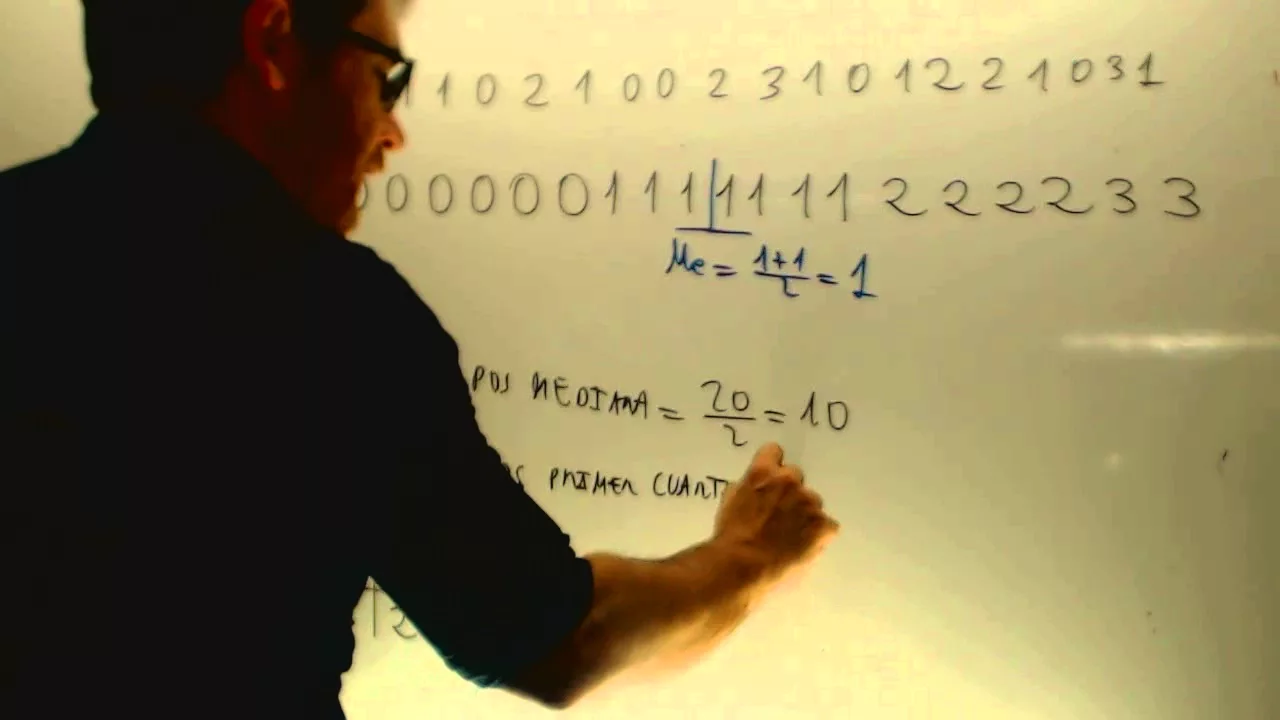 1 1 0 2 1 0 0 2 3 1 0 1 2 2 1 0 3 1
0 0 0 0 0 0 1 1 1 1 1 1 1 2 2 2 2 3 3
Me = 1+1/2 = 1
POS MEDIANA = 20/2 = 10
PRIMER CUART